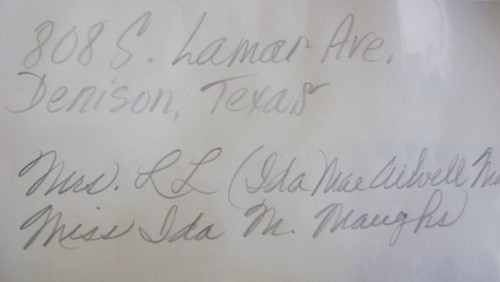 808 S. Lamar Ave.
Denison, Texas
Mrs. L L (Ida Mae
Miss Ida M. Maughs